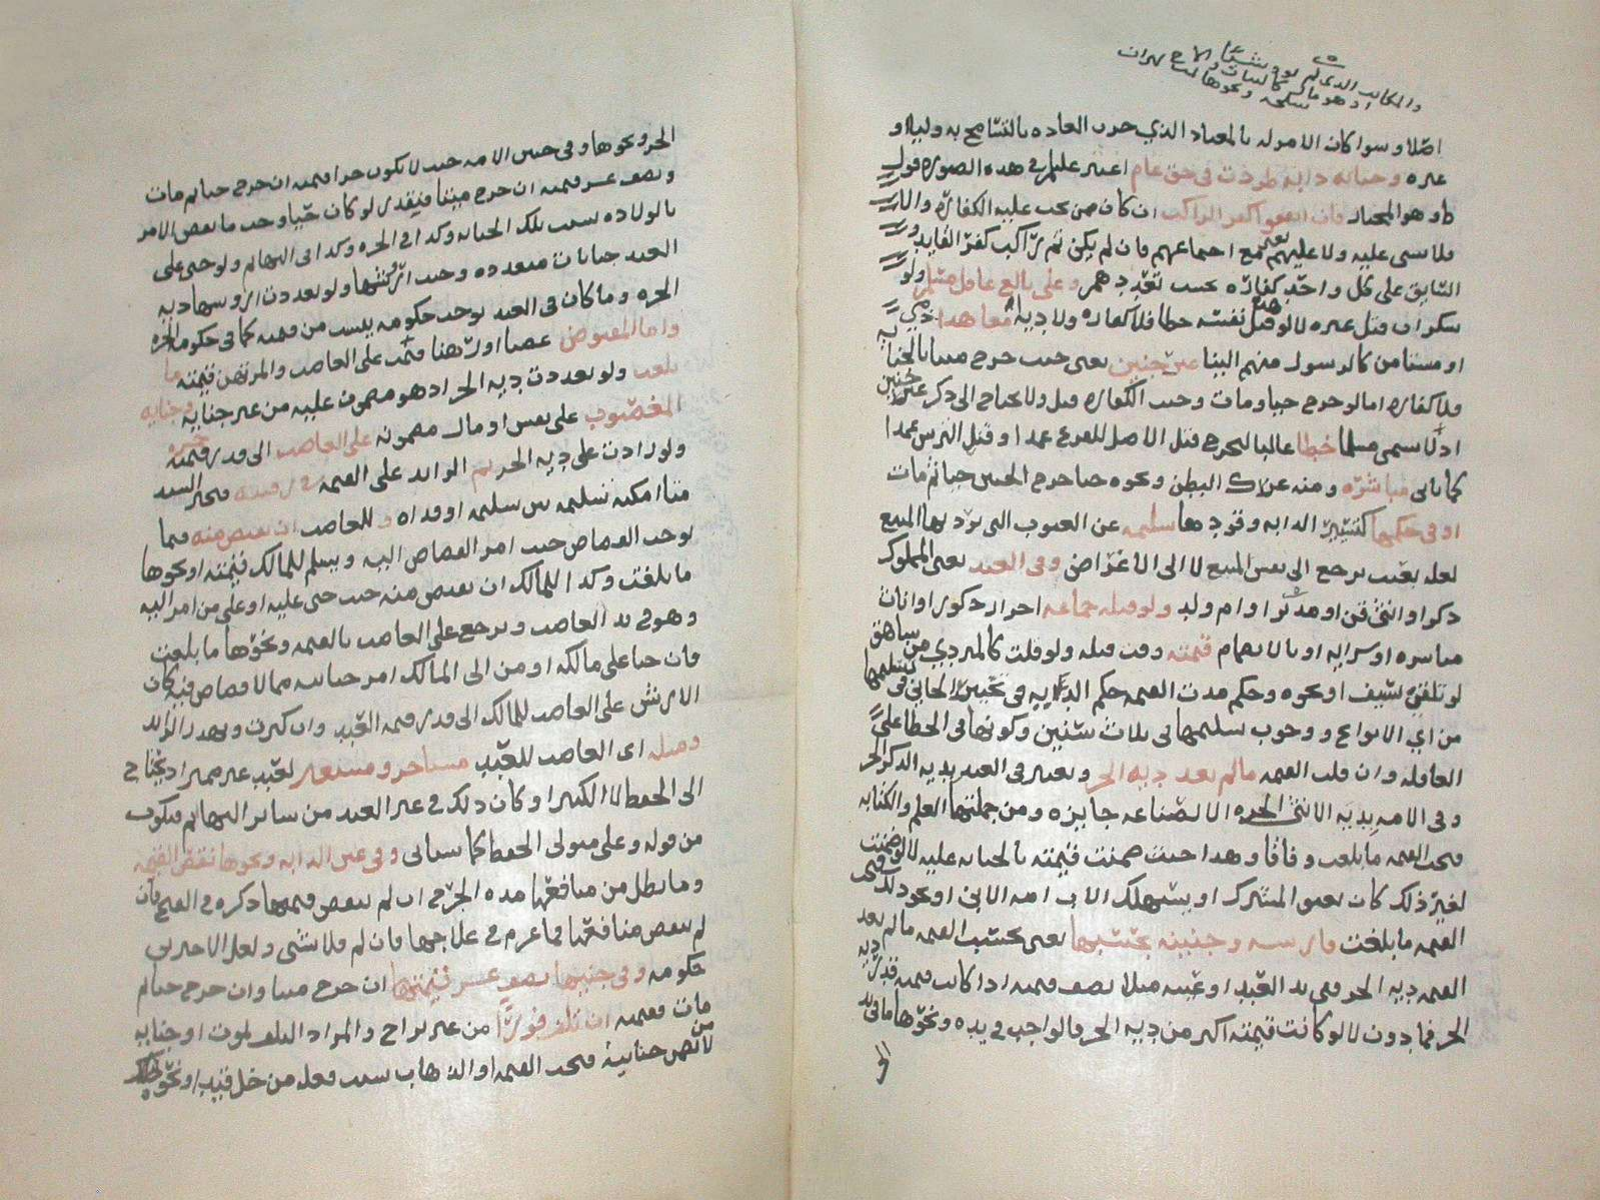 والمكاتب الذي لم يود شيئا
اصلا وسوا كان الامر له بالمعتاد الذي جرت العاده بالتسامح به وليلا و
غيره وجنايه دابه طردت في حق عام اعتبر عليهم في هذه الصوره قول
ط وهو المختار فان اتفقوا كفر الراكب ان كان ممن يجب عليه الكفاره والا
فلا شي عليه ولا عليهم مع اجتماعهم فان لم يكن ثم راكب كفر القايد و
السايق على كل واحد كفاره بحسب تعددهم وعلى بالغ عاقل مسلم ولو
سكران قتل غيره لا لو قتل نفسه خطا فلا كفاره ولا ديه معاهدا
او مستامن كالرسول منهم الينا غير جنين يعني حيث خرج ميتا بالجنايه
فلا كفاره اما لو خرج حيا ومات وجبت الكفاره قيل ولا يحتاج الى ذكر غير جنين
اذ لا يسمى مسلما خطا غالبا ليخرج قتل الاصل للفرع عمدا وقتل الترس عمدا
كما ياتي مباشره ومنه عراك البطن ونحوه حتا خرج الجنين حيا ثم مات
او في حكمها كتسيير الدابه وقودها سليمه عن العيوب التي يرد بها المبيع
لعله بعيب يرجع الى نفس المبيع لا الى الاغراض وفي العبد يعني المملوك
ذكرا او انثى قن او مدبر او ام ولد ولو قتله جماعه احرار ذكور او اناث
مباشره او سرايه او بالانضمام قيمته وقت قتله ولو قلت كالمتردي من شاهق
لو تلقي بسيف او نحوه وحكم مدت القيمه حكم الديه في تخيير الجاني في تسليمها
من اي الانواع ووجوب تسليمها في ثلاث سنين وكونها في الخطا على
العاقله وان قلت القيمه مالم تعد ديه الحر ويعتبر في العبد بديه الذكر الحر
وفي الامه بديه الانثى الحره الا لصناعه جايزه ومن جملتها العلم والكتابه
فتجب القيمه ما بلغت وفاقا وهذا حيث ضمنت قيمته بالجنايه عليه لا لو ضمنت
لغير ذلك كان يعتق المشترك او يستهلك الاب امه الابن او نحو ذلك فتجب
القيمه ما بلغت وارشه وجنينه بحسبها يعني بحسب القيمه مالم تعد
القيمه ديه الحر ففي يد العبد او عينه مثلا نصف قيمته اذا كانت قيمته قدر ديه
الحر فما دون لا لو كانت قيمته اكثر من ديه الحر فالواجب في يده ونحوها ما في يد
الحر
الحر ونحوها وفي جنين الامه حيث لا يكون حرا قيمته ان خرج حيا ثم مات
ونصف عشر قيمته ان خرج ميتا فيقدر لو كان حيا وجب ما نقص الامر
بالولاده بسبب تلك الجنايه وكذا في الحره وكذا في البهايم ولو جنى على
العبد جنايات متعدده وجب ارشها ولو تعددت اروشها ديه
الحره وما كان في العبد يوجب حكومه ينسب من قيمته كما في حكومه الحره
واما المغصوب غصبا او رهنا فتجب على الغاصب والمرتهن قيمته ما
بلغت ولو تعددت ديه الحر اذ هو مضمون عليه من غير جنايه وجنايه
المغصوب على نفس او مال مضمونه على الغاصب الى قدر قيمته
ولو زادت على ديه الحر ثم الزايد على القيمه في رقبته فيخير السيد
متا امكنه تسليمه بين تسليمه او فداه وللغاصب ان يقتص منه فيما
يوجب القصاص حيث امر القصاص اليه ويسلم للمالك قيمته او نحوها
ما بلغت وكذا للمالك ان يقتص منه حيث جنى عليه او على من امر اليه
وهو في يد الغاصب ويرجع على الغاصب بالقيمه ونحوها ما بلغت
فان جنا على مالكه او من الى المالك امر جنايته مما لا قصاص فيه كان
الارش على الغاصب للمالك الى قدر قيمه العبد وان كبرت ويهدر الزايد
ومثله اى الغاصب للعبد مستاجر ومستعير لعبد غير مميز اذ يحتاج
الى الحفظ لا الكبير او كان ذلك في غير العبد من ساير البهايم فيكون
من قوله وعلى متولي الحفظ كما سياتي وفي عين الدابه ونحوها نقص القيمه
وما بطل من منافعها مده الجرح ان لم ينقص قيمتها ذكره في الفتح فان
لم تنقص منافعها فما غرم في علاجها فان لم فلا شي ولعل الاخيرين
حكومه وفي جنينها نصف عشر قيمتها ان خرج ميتا وان خرج حيا ثم
مات فقيمته ان تلف فورا من غير تراخ والمراد التلف لموت او جنايه
لا تنص جنايية فتجب القيمه او الذهاب بسبب فعله من حل قيد او نحوه